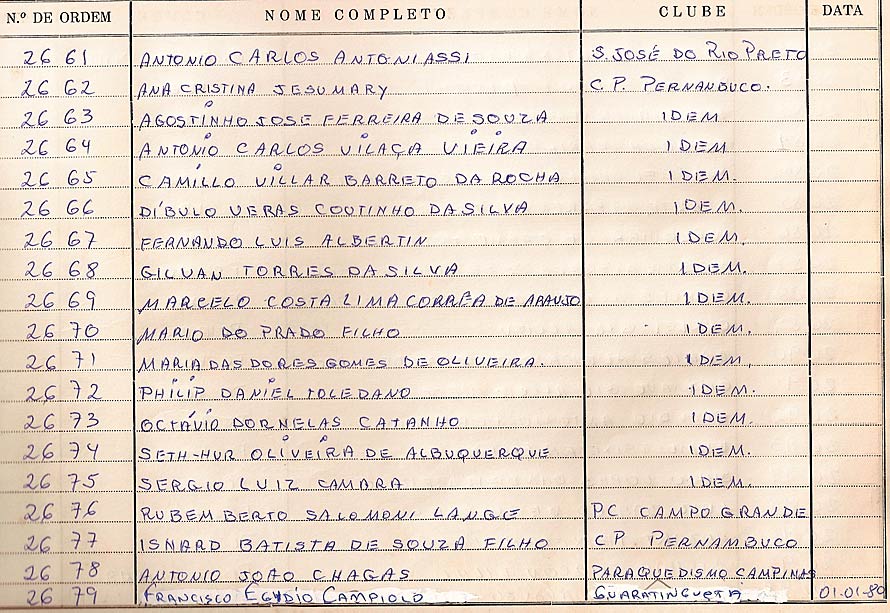 N.º DE ORDEM NOME COMPLETO CLUBE DATA
26 61 ANTONIO CARLOS ANTONIASSI S. JOSÉ DO RIO PRETO
26 62 ANA CRISTINA JESUMARY C.P. PERNAMBUCO.
26 63 AGOSTINHO JOSÉ FERREIRA DE SOUZA IDEM
26 64 ANTONIO CARLOS VILAÇA VIEIRA IDEM.
26 65 CAMILLO VILLAR BARRETO DA ROCHA IDEM.
26 66 DÍBULO VERAS COUTINHO DA SILVA IDEM.
26 67 FERNANDO LUIS ALBERTIN IDEM.
26 68 GILVAN TORRES DA SILVA IDEM.
26 69 MARCELO COSTA LIMA CORRÊA DE ARAUJO IDEM.
26 70 MARIO DO PRADO FILHO IDEM.
26 71 MARIA DAS DORES GOMES DE OLIVEIRA. IDEM.
26 72 PHILIP DANIEL TOLEDANO IDEM.
26 73 OCTÁVIO DORNELAS CATANHO IDEM.
26 74 SETH-HUR OLIVEIRA DE ALBUQUERQUE IDEM.
26 75 SERGIO LUIZ CAMARA IDEM.
26 76 RUBEM BERTO SALOMONI LANGE PC CAMPO GRANDE
26 77 ISNARD BATISTA DE SOUZA FILHO C.P. PERNAMBUCO
26 78 ANTONIO JOÃO CHAGAS PARAQUEDISMO CAMPINAS
26 79 FRANCISCO EGYDIO CAMPIOLO GUARATINGUETA 01-01-80